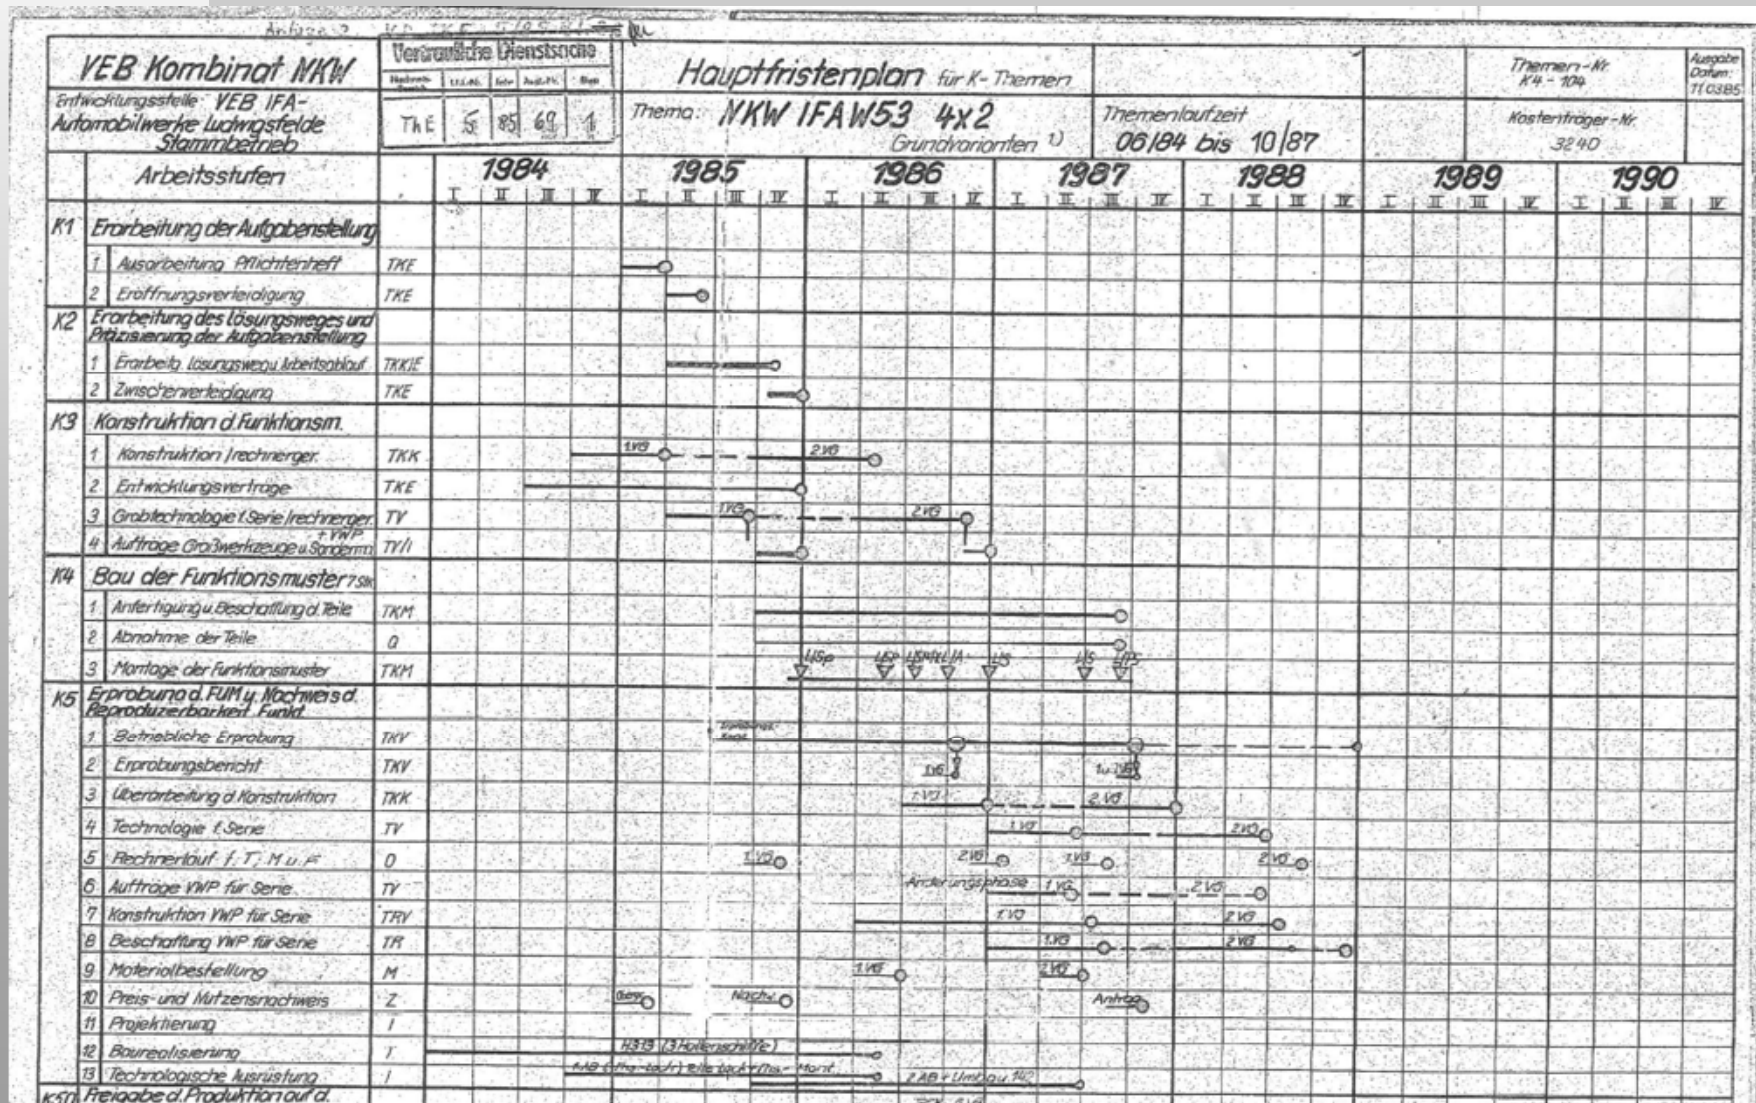 Anlage 2
VEB Kombinat NKW
Vertrauliche Dienstsache
ThE 5 85 69 1
Hauptfristenplan für K-Themen
Themen-Nr.
K4-104
Ausgabe
Datum:
110385
Entwicklungsstelle VEB IFA-
Automobilwerke Ludwigsfelde
Stammbetrieb
Thema: NKW IFA W53 4x2
Grundvarianten 1)
Themenlaufzeit
06/84 bis 10/87
Kostenträger-Nr.
3240
Arbeitsstufen 1984 1985 1986 1987 1988 1989 1990
I II III IV I II III IV I II III IV I II III IV I II III IV I II III IV I II III IV
K1 Erarbeitung der Aufgabenstellung
1 Ausarbeitung Pflichtenheft TKE
2 Eröffnungsverteidigung TKE
K2 Erarbeitung des Lösungsweges und
Präzisierung der Aufgabenstellung
1 Erarbeitg. Lösungsweg u. Arbeitsablauf TKK/E
2 Zwischenverteidigung TKE
K3 Konstruktion d. Funktionsm.
1 Konstruktion /rechnerger. TKK 1.VG 2.VG
2 Entwicklungsverträge TKE
3 Grobtechnologie f. Serie /rechnerger. TV 1.VG 2.VG
+ VWP
4 Aufträge Großwerkzeuge u. Sonderma TV/I
K4 Bau der Funktionsmuster 7 Stk
1 Anfertigung u. Beschaffung d. Teile TKM
2 Abnahme der Teile Q
3 Montage der Funktionsmuster TKM L/Sp L/Sp L/S L/S
K5 Erprobung d. FUM u. Nachweis d.
Reproduzierbarkeit Funkt.
1 Betriebliche Erprobung TKV
2 Erprobungsbericht TKV 1.VG
3 Überarbeitung d. Konstruktion TKK 1.VG 2.VG
4 Technologie f. Serie TV 1.VG 2.VG
5 Rechnerlauf f. T, M u. P O 1.VG 2.VG 1.VG 2.VG
6 Aufträge VWP für Serie TV Änderungsphase 1.VG 2.VG
7 Konstruktion VWP für Serie TRV 1.VG 2.VG
8 Beschaffung VWP für Serie TR 1.VG 2.VG
9 Materialbestellung M 1.VG 2.VG
10 Preis- und Nutzensnachweis Z Nachw. Antrag
11 Projektierung I
12 Baurealisierung I H313 (3 Hallenschiffe)
13 Technologische Ausrüstung I 2.AB + Umbau
K5/0 Freigabe d. Produktion auf d.